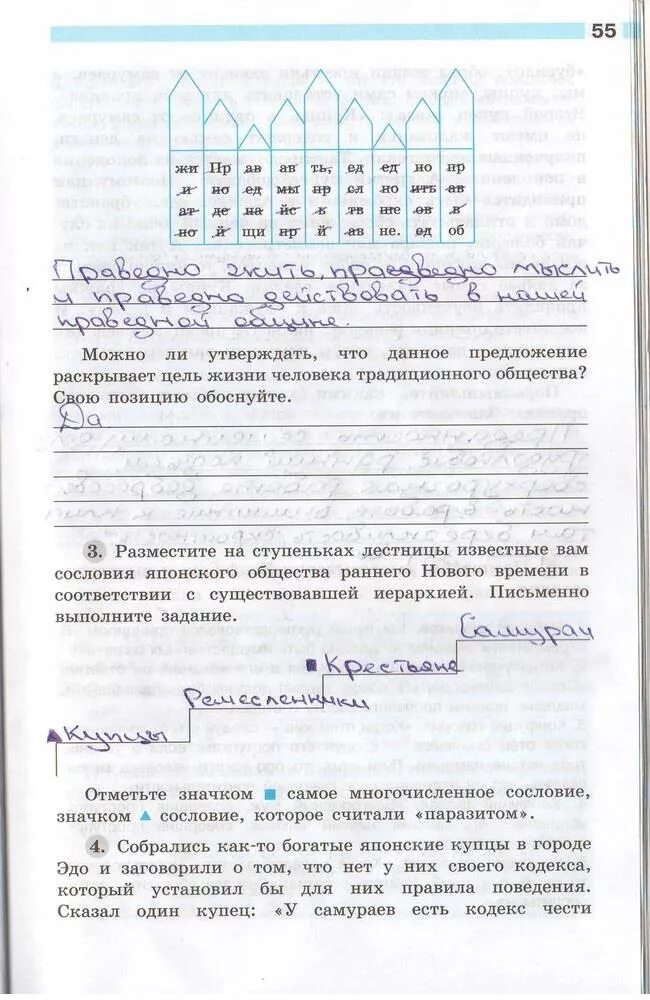 55
жи Пр ав ав ть, ед ед но пр
и но ед мы пр сл но ить ав
ат де на йс в тв ше ов в
но й щи пр й ав не. ед об
Праведно жить, праведно мыслить
и праведно действовать в нашей
праведной общине.
Можно ли утверждать, что данное предложение
раскрывает цель жизни человека традиционного общества?
Свою позицию обоснуйте.
Да
3. Разместите на ступеньках лестницы известные вам
сословия японского общества раннего Нового времени в
соответствии с существовавшей иерархией. Письменно
выполните задание.
Самураи
Крестьяне
Ремесленники
Купцы
Отметьте значком ■ самое многочисленное сословие,
значком ▲ сословие, которое считали «паразитом».
4. Собрались как-то богатые японские купцы в городе
Эдо и заговорили о том, что нет у них своего кодекса,
который установил бы для них правила поведения.
Сказал один купец: «У самураев есть кодекс чести